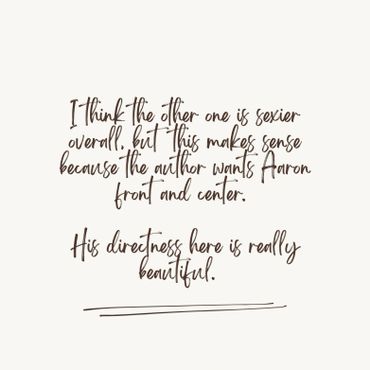 I think the other one is sexier
overall, but this makes sense
because the author wants Aaron
front and center.
His directness here is really
beautiful.